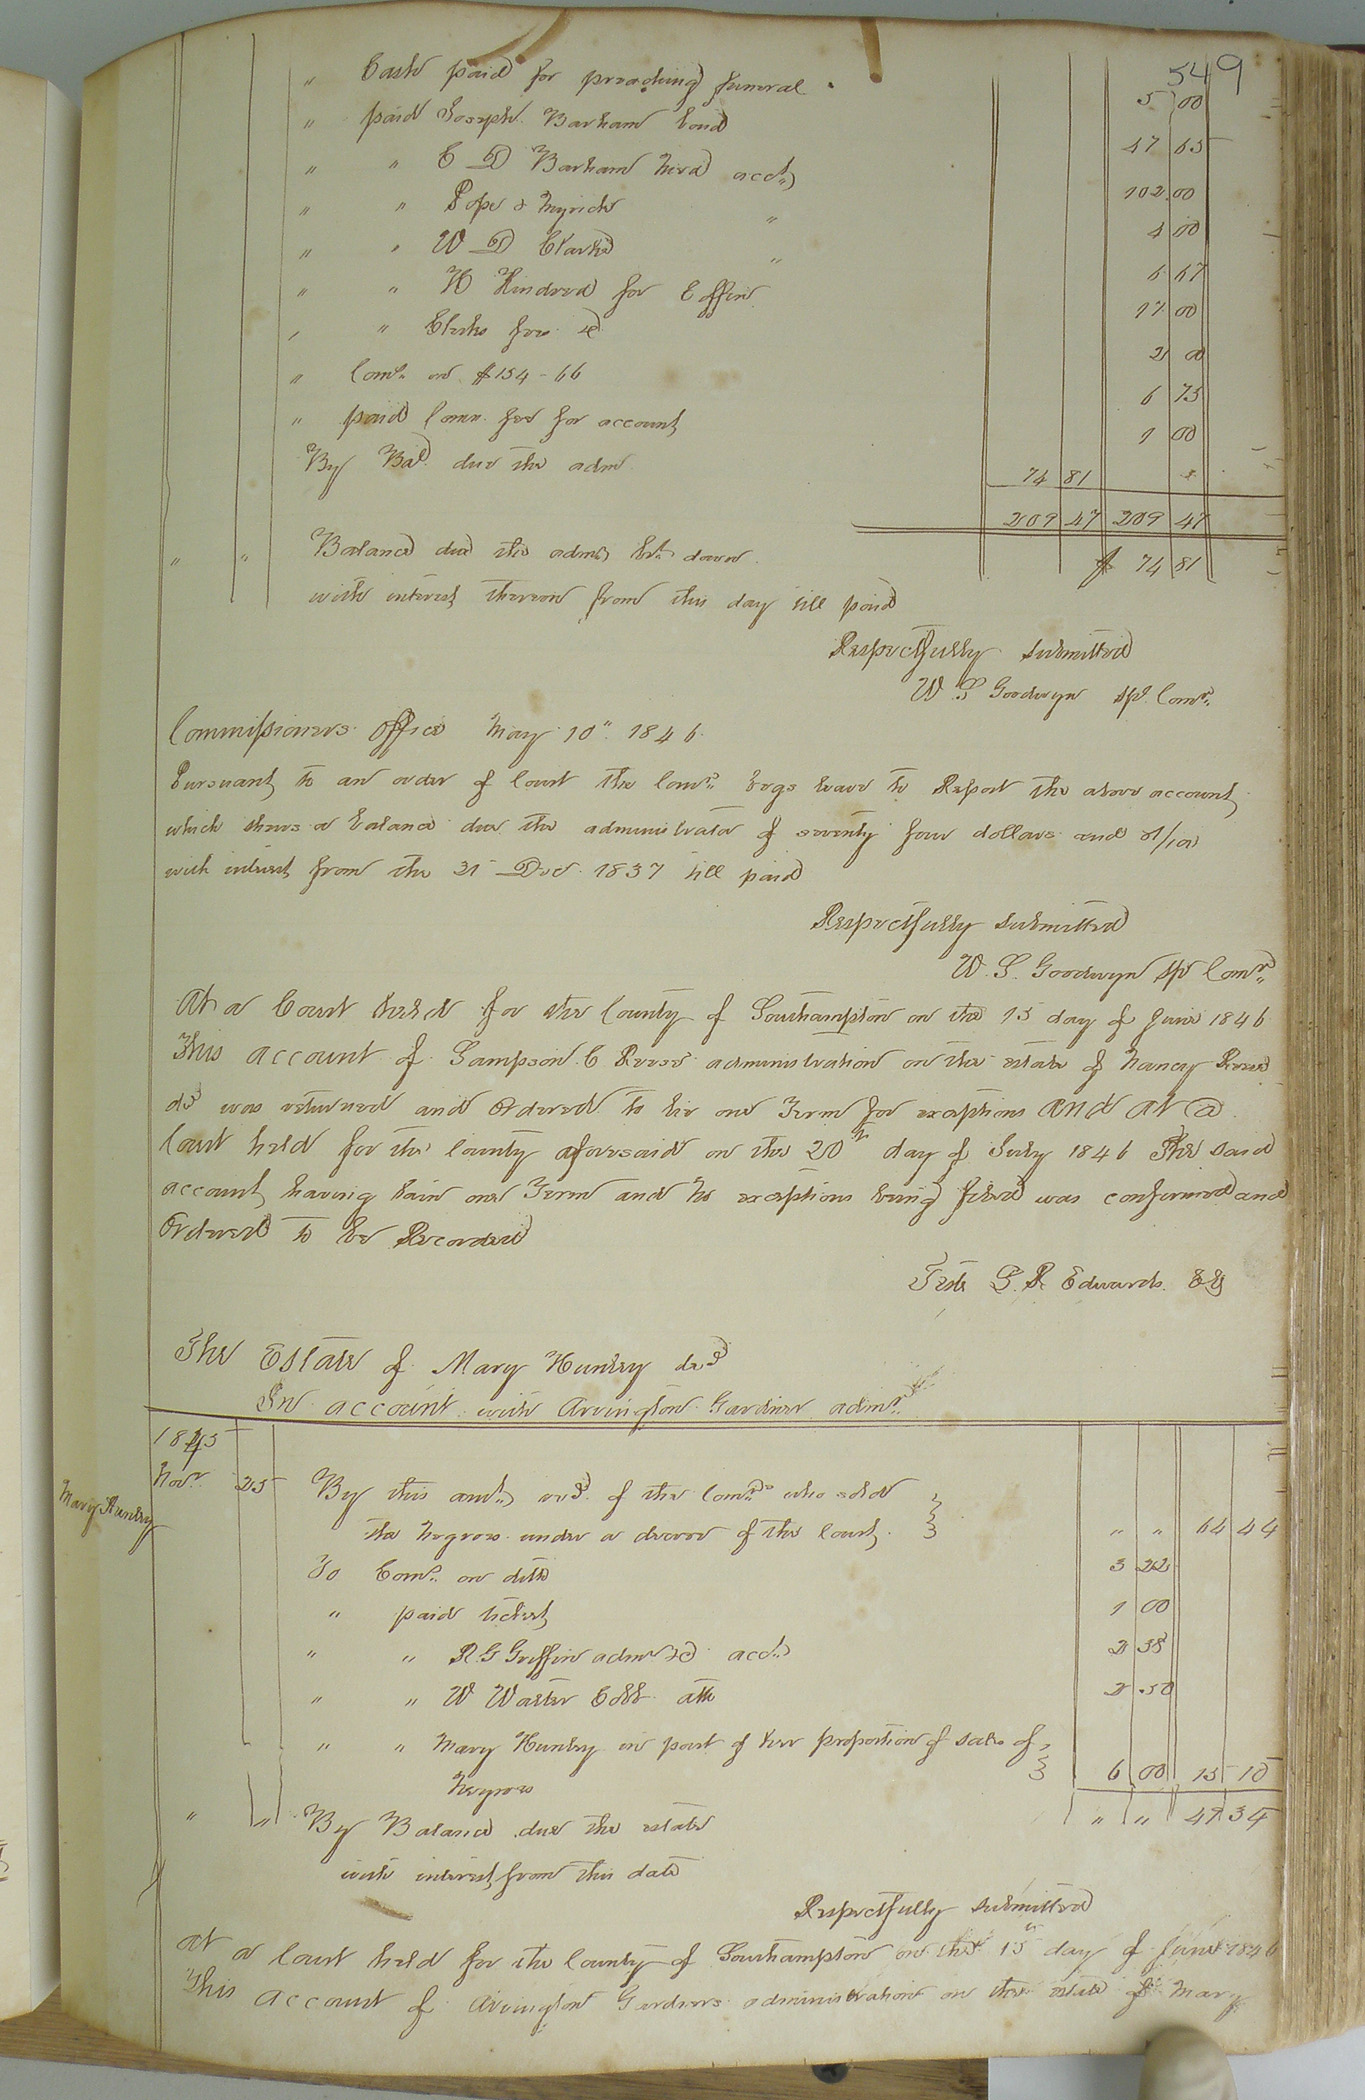 549
" Cash paid for preaching funeral 5 00
" paid Joseph Barham bond 47 65
" " C D Barham Merd acct 102 00
" " Pope & Myrick " 4 00
" " W D Clarke " 6 67
" " H Kindred for Coffin 17 00
" " Clerks fees 2 00
" Comn on $134-66 6 73
" paid Comr fee for account 1 00
By Bal due the admr 74 81
209 47 209 47
" " Balance due the admr brt down $ 74 81
with interest thereon from this day till paid
Respectfully submitted
W S Goodwyn spl Comr
Commissioners Office May 10" 1846
Pursuant to an order of Court the Comr begs leave to Report the above account
which shews a balance due the administrator of seventy four dollars and 81/100
with interest from the 31 Dec 1837 till paid
Respectfully submitted
W. S. Goodwyn spl Comr
At a Court held for the County of Southampton on the 15 day of June 1846
This account of Sampson C Reese administration on the estate of Nancy Reese
decd was returned and Ordered to lie one Term for exceptions And At a
Court held for the County aforesaid on the 20th day of July 1846 The said
account having lain one Term and No exceptions being filed was confirmed and
Ordered to be Recorded
Teste L. R. Edwards CC
The Estate of Mary Huntey decd
In account with Arrington Gardner admr
1845
Novr 25 By this amt recd of the Comrs who sold
Mary Huntey
the Negroes under a decree of the Court " " 64 44
To Comn on ditto 3 22
" paid ticket 1 00
" " R. G Griffin admr acct 2 38
" " W Walter Cobb atto 2 50
" " Mary Huntey in part of her proportion of sales of
Negroes 6 00 15 10
" " By Balance due the estate " " 49 34
with interest from this date
Respectfully submitted
At a Court held for the County of Southampton on the 15th day of June 1846
This account of Arrington Gardners administration on the estate of Mary